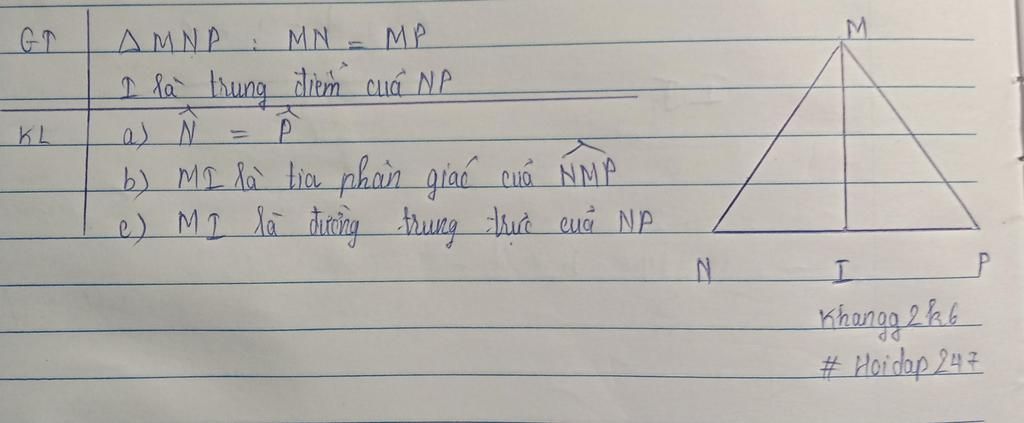 GT ΔMNP : MN = MP
I là trung điểm của NP
KL a) N̂ = P̂
b) MI là tia phân giác của N̂M̂P̂
c) MI là đường trung trực của NP
M
N I P
Khangg2k6
# Hoidap247